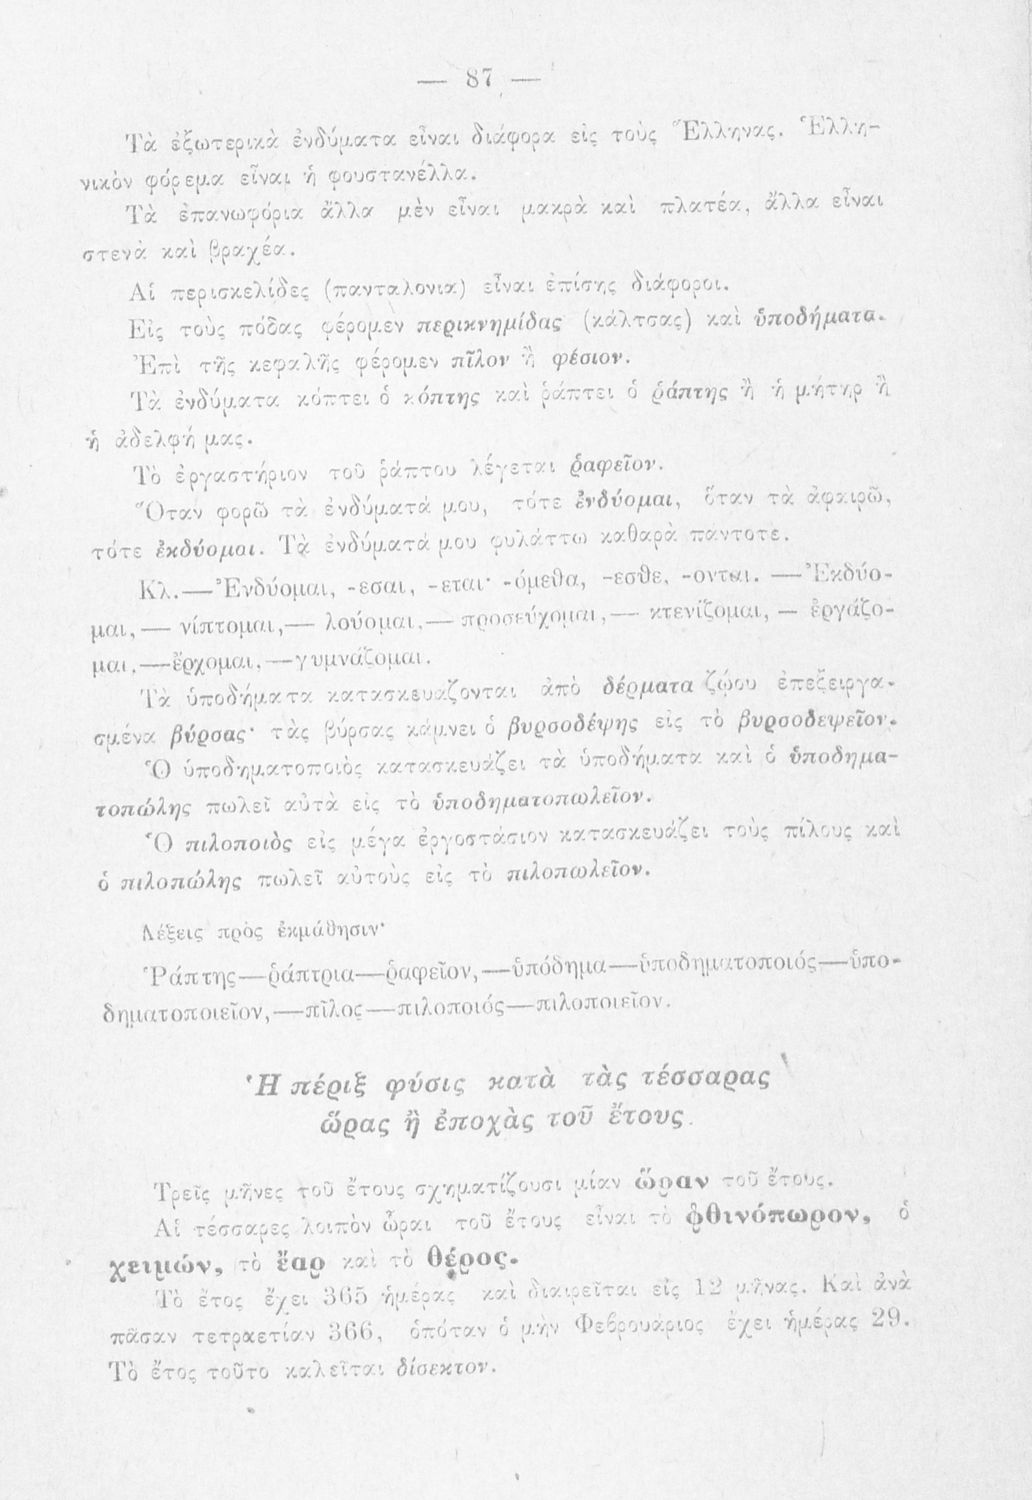 — 87 —
Τὰ ἐξωτερικὰ ἐνδύματα εἶναι διάφορα εἰς τοὺς Ἕλληνας. Ἑλλη-
νικὸν φόρεμα εἶναι ἡ φουστανέλλα.
Τὰ ἐπανωφόρια ἄλλα μὲν εἶναι μακρὰ καὶ πλατέα, ἄλλα εἶναι
στενὰ καὶ βραχέα.
Αἱ περισκελίδες (πανταλονια) εἶναι ἐπίσης διάφοροι.
Εἰς τοὺς πόδας φέρομεν περικνημίδας (κάλτσας) καὶ ὑποδήματα.
Ἐπὶ τῆς κεφαλῆς φέρομεν πῖλον ἢ φέσιον.
Τὰ ἐνδύματα κόπτει ὁ κόπτης καὶ ῥάπτει ὁ ῥάπτης ἢ ἡ μήτηρ ἢ
ἡ ἀδελφή μας.
Τὸ ἐργαστήριον τοῦ ῥάπτου λέγεται ῥαφεῖον.
Ὅταν φορῶ τὰ ἐνδύματά μου, τότε ἐνδύομαι, ὅταν τὰ ἀφαιρῶ,
τότε ἐκδύομαι. Τὰ ἐνδύματά μου φυλάττω καθαρὰ παντοτε.
Κλ.—Ἐνδύομαι, -εσαι, -εται· -όμεθα, -εσθε, -ονται. —Ἐκδύο-
μαι,— νίπτομαι,— λούομαι,— προσεύχομαι,— κτενίζομαι, — ἐργάζο-
μαι,—ἔρχομαι,—γυμνάζομαι.
Τὰ ὑποδήματα κατασκευάζονται ἀπὸ δέρματα ζῴου ἐπεξειργα-
σμένα βύρσας· τὰς βύρσας κάμνει ὁ βυρσοδέψης εἰς τὸ βυρσοδεψεῖον.
Ὁ ὑποδηματοποιὸς κατασκευάζει τὰ ὑποδήματα καὶ ὁ ὑποδημα-
τοπώλης πωλεῖ αὐτὰ εἰς τὸ ὑποδηματοπωλεῖον.
Ὁ πιλοποιὸς εἰς μέγα ἐργοστάσιον κατασκευάζει τοὺς πίλους καὶ
ὁ πιλοπώλης πωλεῖ αὐτοὺς εἰς τὸ πιλοπωλεῖον.
Λέξεις πρὸς ἐκμάθησιν·
Ῥάπτης—ῥάπτρια—ῥαφεῖον,—ὑπόδημα—ὑποδηματοποιός—ὑπο-
δηματοποιεῖον,—πῖλος—πιλοποιός—πιλοποιεῖον.
Ἡ πέριξ φύσις κατὰ τὰς τέσσαρας
ὥρας ἢ ἐποχὰς τοῦ ἔτους.
Τρεῖς μῆνες τοῦ ἔτους σχηματίζουσι μίαν ὥραν τοῦ ἔτους.
Αἱ τέσσαρες λοιπὸν ὧραι τοῦ ἔτους εἶναι τὸ φθινόπωρον, ὁ
χειμών, τὸ ἔαρ καὶ τὸ θέρος.
Τὸ ἔτος ἔχει 365 ἡμέρας καὶ διαιρεῖται εἰς 12 μῆνας. Καὶ ἀνὰ
πᾶσαν τετραετίαν 366, ὁπόταν ὁ μὴν Φεβρουάριος ἔχει ἡμέρας 29.
Τὸ ἔτος τοῦτο καλεῖται δίσεκτον.